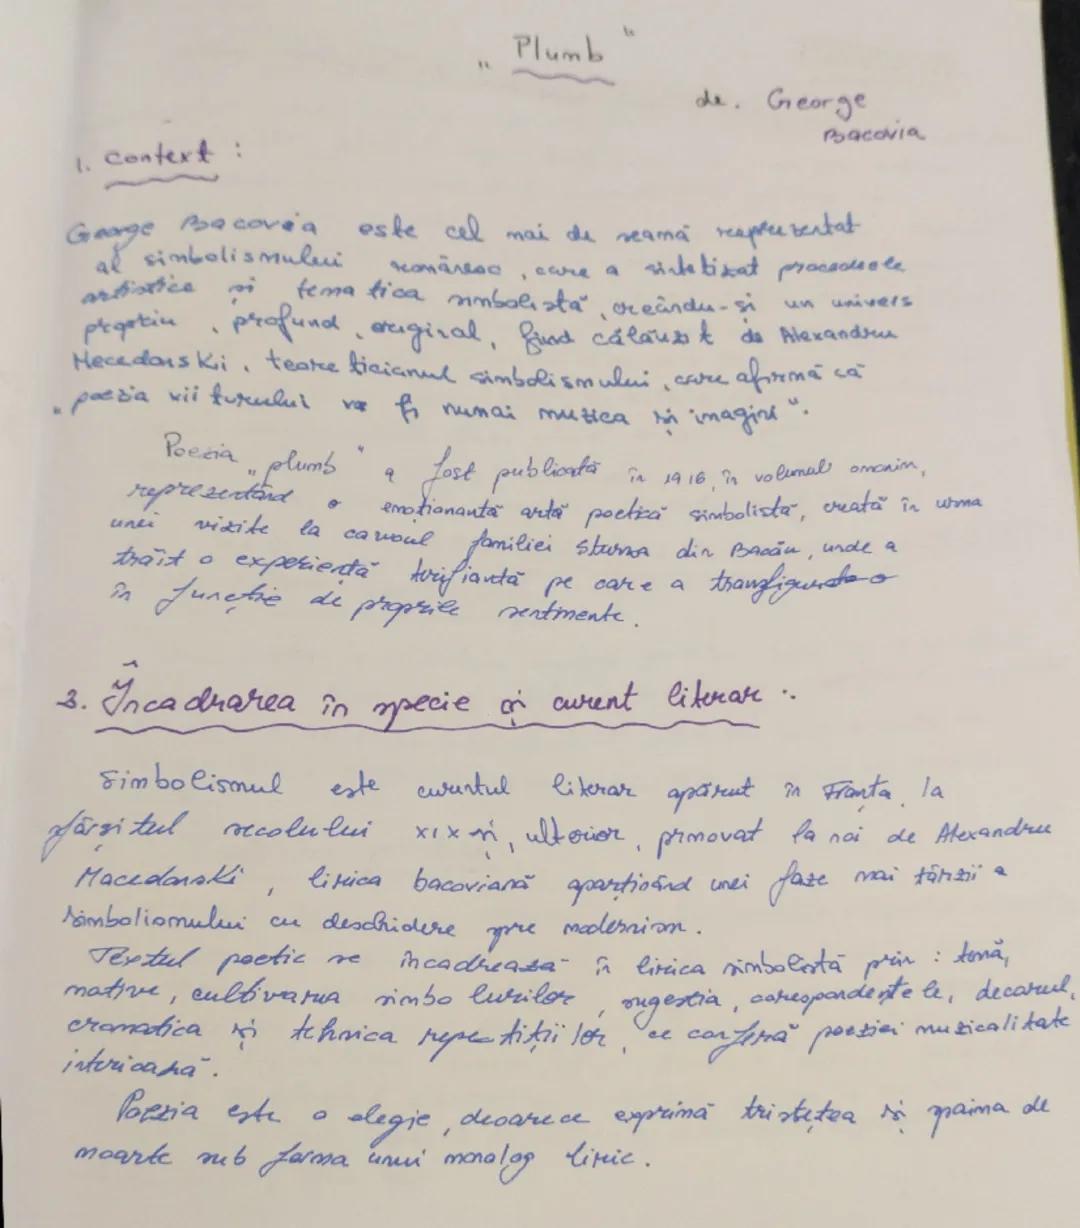 „Plumb"
de. George
Bacovia
1. Context :
George Bacovia este cel mai de seamă reaprezentat
al simbolismului românesc, care a sintetizat procedeele
artistice și tematica simbolistă, creându-și un univers
propriu, profund, original, fiind călăuzit de Alexandru
Macedonski, teoreticianul simbolismului, care afirmă că
„poezia viitorului va fi numai muzica și imagini".
Poezia „plumb" a fost publicată în 1916, în volumul omonim,
reprezentând o emoționantă artă poetică simbolistă, creată în urma
unei vizite la cavoul familiei Sturza din Bacău, unde a
trăit o experiență terifiantă pe care a
în funcție de propriile sentimente.
3. Încadrarea în specie și curent literar :
Simbolismul este curentul literar apărut în Franța, la
sfârșitul secolului XIX și, ulterior, prmovat la noi de Alexandru
Macedonski, lirica bacoviană aparținând unei faze mai târzii a
simbolismului cu deschidere spre modernism.
Textul poetic se încadrează în lirica simbolistă prin : temă,
motive, cultivarea simbolurilor, sugestia, corespondentele, decorul,
cromatica și tehnica repetitiilor, ce conferă poeziei muzicalitate
interioară.
Poezia este o elegie, deoarece exprimă tristețea și spaima de
moarte sub forma unui monolog liric.